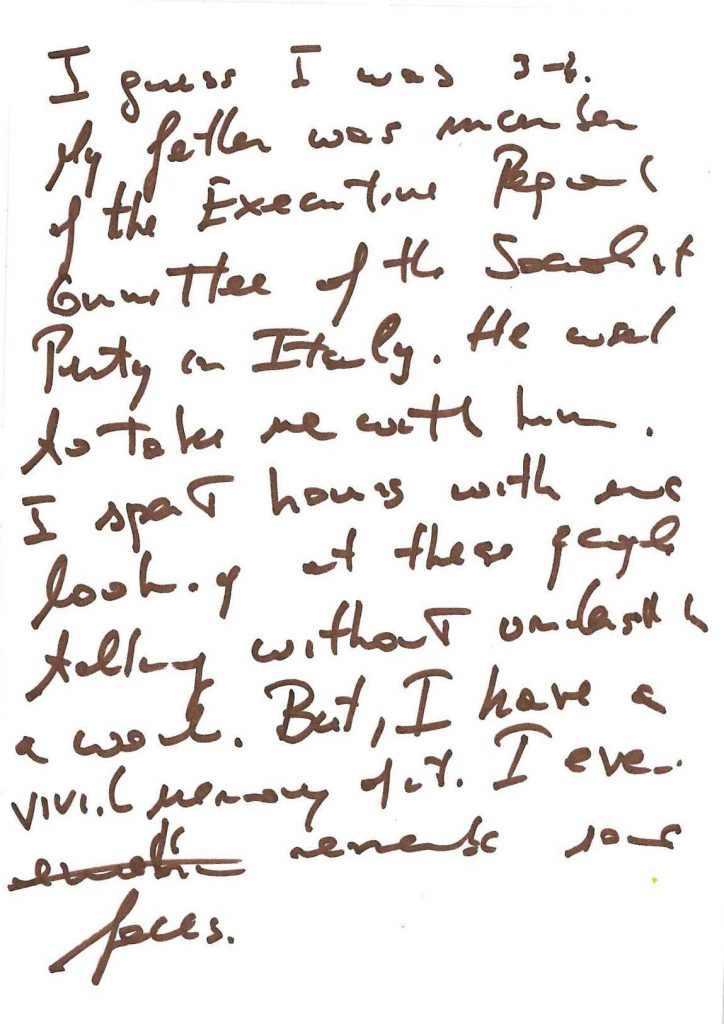 I guess I was 3-4.
My father was member
of the Executive Regional
Committee of the Socialist
Party in Italy. He used
to take me with him.
I spent hours with me
looking at these people
talking without understanding
a word. But, I have a
vivid memory of it. I even
remember some
faces.